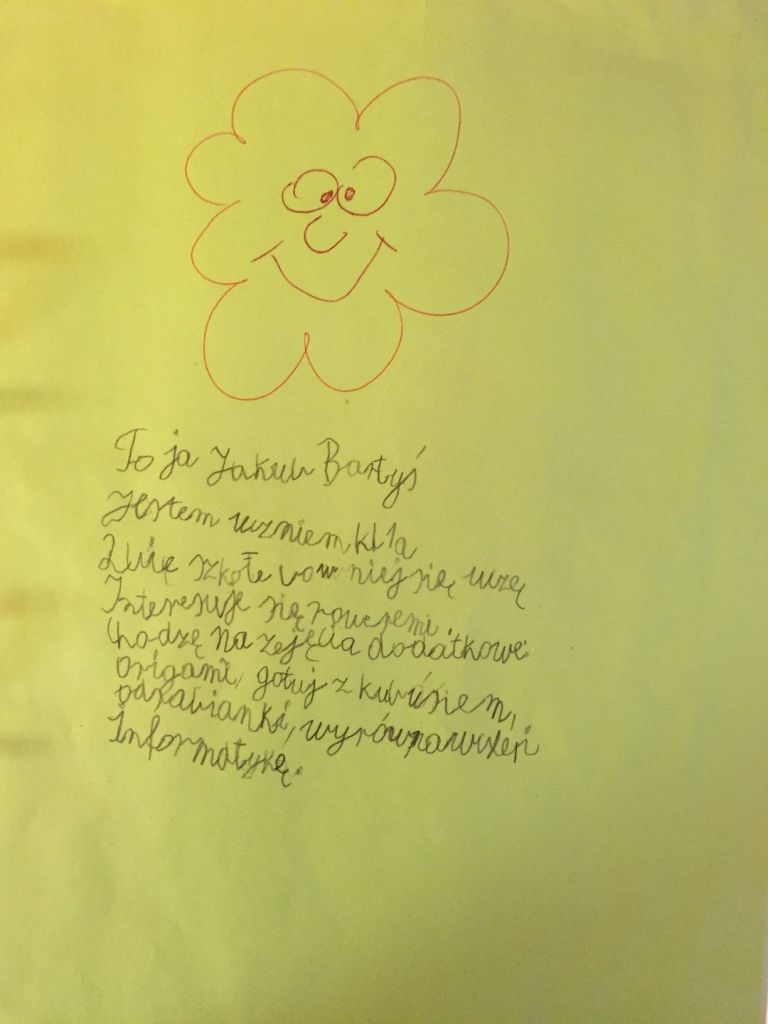 To ja Jakub Bartyś
Jestem uzniem kl 1a
Lubię szkołe bo w niej się uczę
Interesuje się
Chodzę na zajęcia dodatkowe:
origami, gotuj z kubusiem,
wyrównawrzeń
Informatykę.